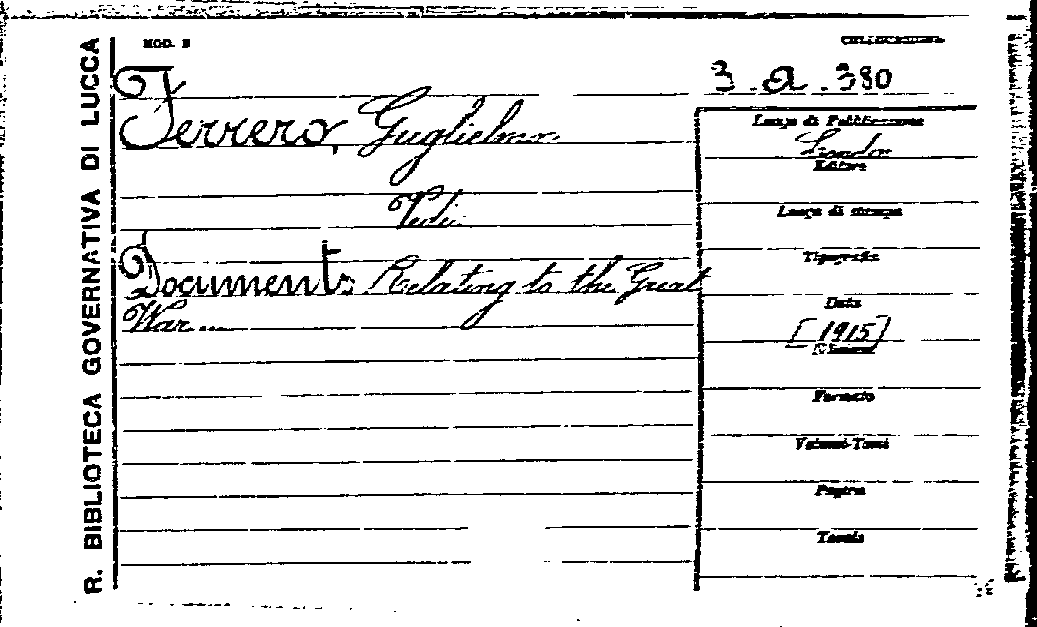 R. BIBLIOTECA GOVERNATIVA DI LUCCA
MOD. B
COLLOCAZIONE
3.a.380
Ferrero, Guglielmo
Vedi:
Documents Relating to the Great
War...
Luogo di Pubblicazione
London
Editore
Luogo di stampa
Tipografia
Data
[1915]
Formato
Volumi-Tomi
Pagine
Tavole